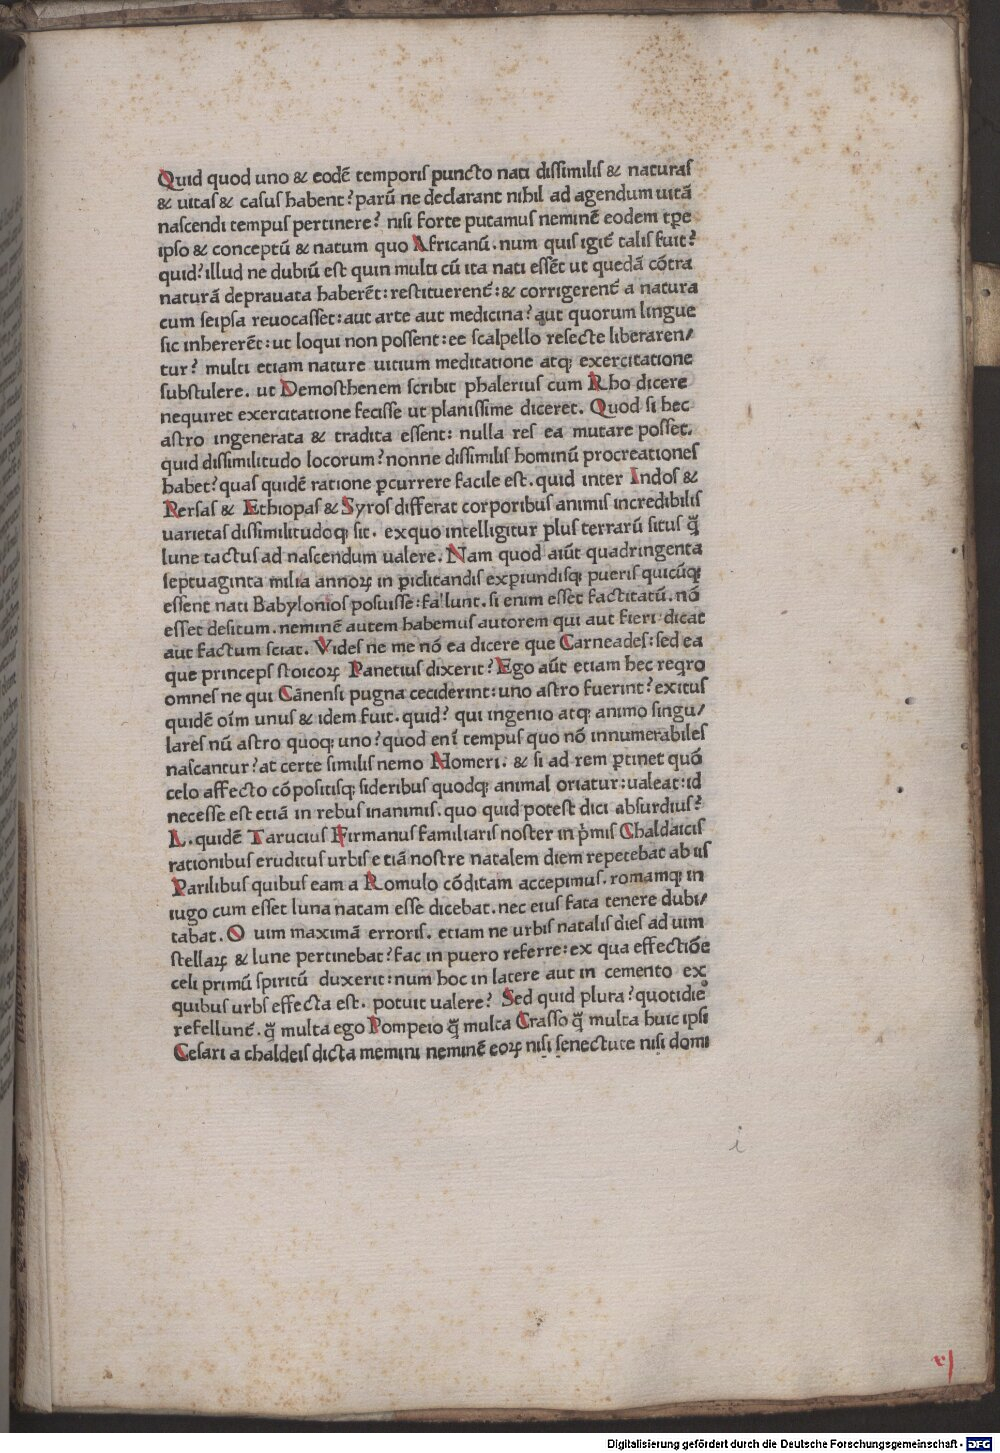 Quid quod uno & eodē temporis puncto nati dissimilis & naturas
& uitas & casus habent? parū ne declarant nihil ad agendum uitā
nascendi tempus pertinere? nisi forte putamus neminē eodem tꝑe
ipso & conceptū & natum quo Africanū. num quis igit̄ talis fuit?
quid? illud ne dubiū est quin multi cū ita nati essēt ut quedā cōtra
naturā deprauata haberēt: restituerent̄: & corrigerent̄ a natura
cum seipsa reuocasset: aut arte aut medicina? aut quorum lingue
sic inhererēt: ut loqui non possent: ee scalpello resecte liberaren/
tur? multi etiam nature uitium meditatione atqꝫ exercitatione
substulere. ut Demosthenem scribit phalerius cum Rho dicere
nequiret exercitatione fecisse ut planissime diceret. Quod si hec
astro ingenerata & tradita essent: nulla res ea mutare posset.
quid dissimilitudo locorum? nonne dissimilis hominū procreationes
habet? quas quidē ratione ꝑcurrere facile est. quid inter Indos &
Persas & Ethiopas & Syros differat corporibus animis incredibilis
uarietas dissimilitudoqꝫ sit. exquo intelligitur plus terrarū situs q̄̃
lune tactus ad nascendum ualere. Nam quod aiūt quadringenta
septuaginta milia annoꝝ in ꝑiclitandis exꝑiundisqꝫ pueris quicūqꝫ
essent nati Babylonios posuisse: fallunt. si enim esset factitatū. nō
esset desitum. neminē autem habemus autorem qui aut fieri dicat
aut factum sciat. Vides ne me nō ea dicere que Carneades: sed ea
que princeps stoicoꝝ Panetius dixerit? Ego aūt etiam hec reqro
omnes ne qui Cānensi pugna ceciderint: uno astro fuerint? exitus
quidē oīm unus & idem fuit. quid? qui ingenio atqꝫ animo singu/
lares nū astro quoqꝫ uno? quod enī tempus quo nō innumerabiles
nascantur? at certe similis nemo Homeri. & si ad rem ꝑtinet quō
celo affecto cōpositisqꝫ sideribus quodqꝫ animal oriatur: ualeat: id
necesse est etiā in rebus inanimis. quo quid potest dici absurdius?
L. quidē Tarucius Firmanus familiaris noster in p̄mis Chaldaicis
rationibus eruditus urbis etiā nostre natalem diem repetebat ab iis
Parilibus quibus eam a Romulo cōditam accepimus. romamqꝫ in
iugo cum esset luna natam esse dicebat. nec eius fata tenere dubi/
tabat. O uim maximā erroris. etiam ne urbis natalis dies ad uim
stellaꝝ & lune pertinebat? fac in puero referre: ex qua effectiōe
celi primū spiritū duxerit: num hoc in latere aut in cemento ex
quibus urbs effecta est. potuit ualere? Sed quid plura? quotidie
refellunt̄. q̄̃ multa ego Pompeio q̄̃ multa Crasso q̄̃ multa huic ipsi
Cesari a chaldeis dicta memini neminē eoꝝ nisi senectute nisi domi
i
Digitalisierung gefördert durch die Deutsche Forschungsgemeinschaft - DFG